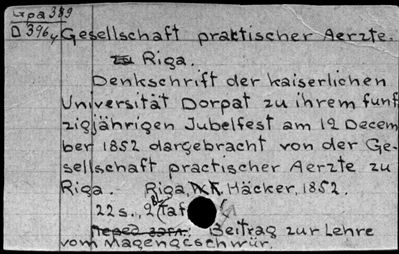 Gpa 389
D 396y
Gesellschaft praktischer Aerzte.
zu Riga.
Denkschrift der kaiserlichen
Universität Dorpat zu ihrem funf
zigjährigen Jubelfest am 12 Decem
ber 1852 dargebracht von der Ge-
sellschaft practischer Aerzte zu
Riga. Riga, Häcker, 1852.
22 s., 2 Taf
Перед загл.: Beitrag zur Lehre
vom Magengeschwür.